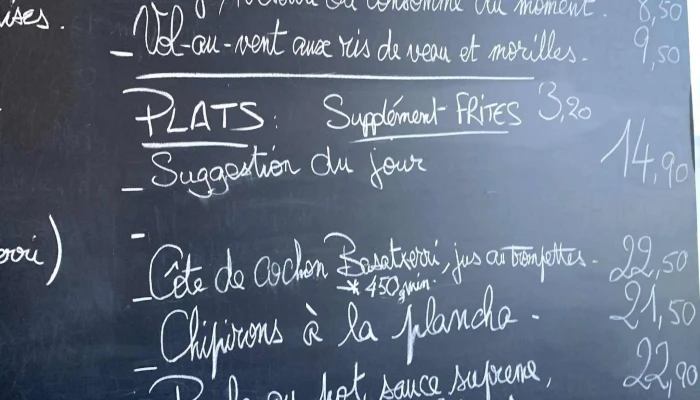 ises.
ou consommé du moment. 8,50
- Vol-au-vent aux ris de veau et morilles. 9,50
PLATS: Supplément FRITES 3,20
- Suggestion du jour 14,90
-
- Côte de cochon Basatxerri, jus aux trompettes. 22,50
* 450g min.
- Chipirons à la plancha. 21,50
- au pot, sauce suprême, 22,90